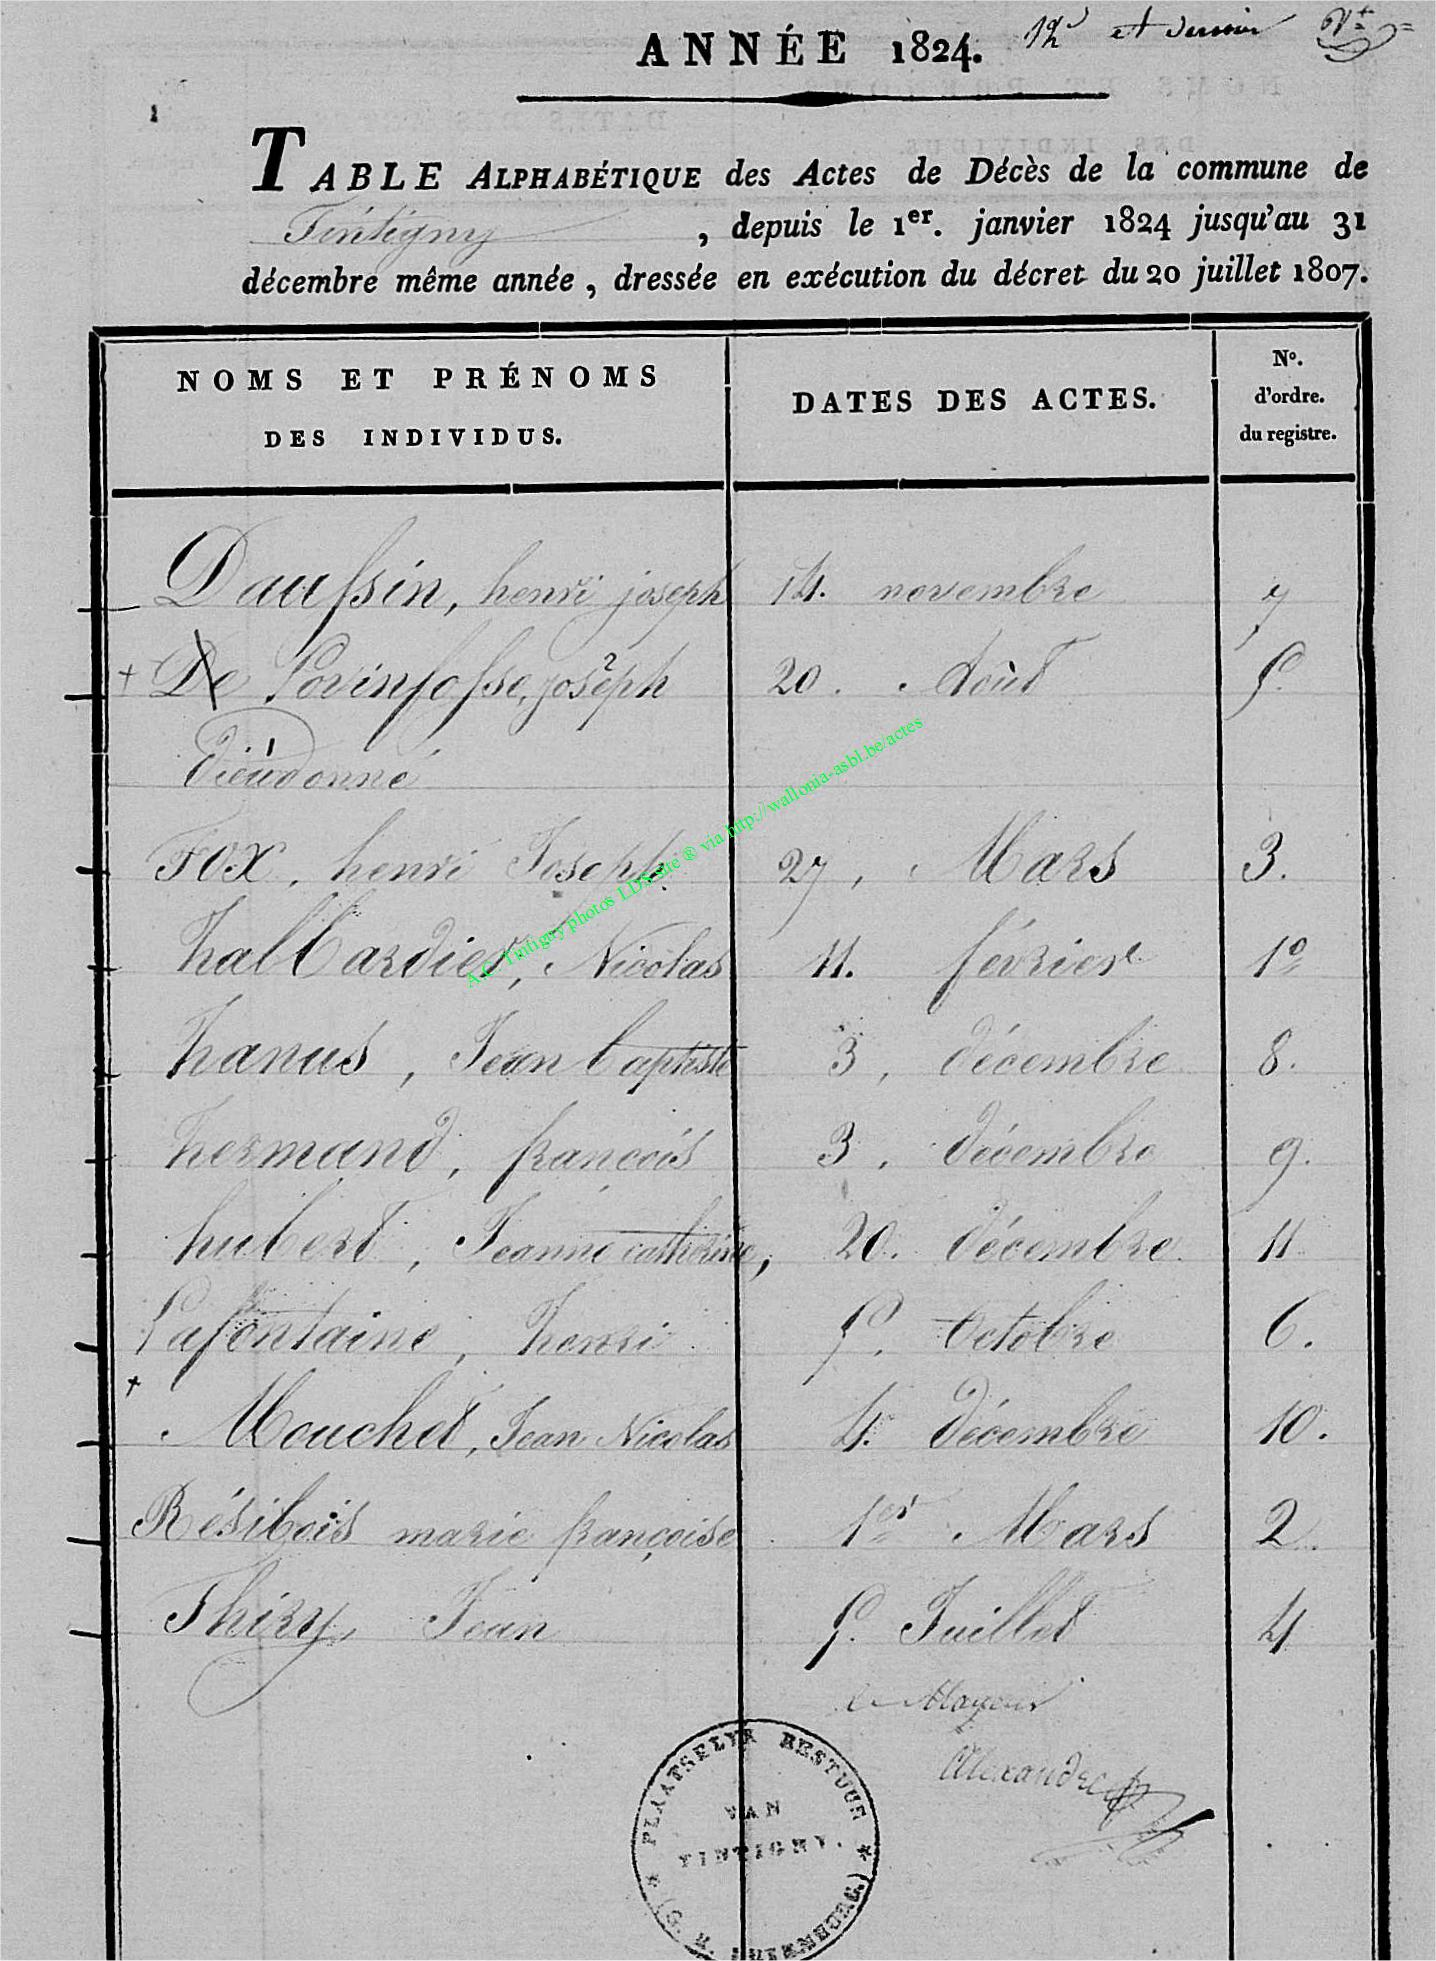 ANNÉE 1824. 12e et dernier
TABLE ALPHABÉTIQUE des Actes de Décès de la commune de
Tintigny , depuis le 1er. janvier 1824 jusqu'au 31
décembre même année, dressée en exécution du décret du 20 juillet 1807.
NOMS ET PRÉNOMS
DES INDIVIDUS.
DATES DES ACTES.
No.
d'ordre.
du registre.
Daussin, henri joseph 14. novembre 7
+ De Lovinfosse, joseph 20. Août 5.
dieudonné
Fox, henri Joseph 27, Mars 3.
halbardier, Nicolas 11. février 1o
hanus, Jean baptiste 3, décembre 8.
hermand, françois 3, décembre 9.
hubert, Jeanne catherine, 20. décembre 11
Lafontaine, henri 5. Octobre 6.
+ Mouchet, Jean Nicolas 4. décembre 10.
Résibois marie françoise 1er Mars 2.
Thiry, Jean 5. Juillet 4
le Mayeur
Alexandre
PLAATSELYK BESTUUR
VAN
TINTIGNY.
A.C. Tintigny photos LDS site ® via http://wallonia-asbl.be/actes